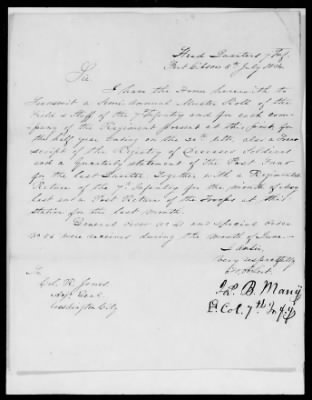 Head Quarters 7 Inf.
Fort Gibson 5th July
Sir
I have the honor herewith to
transmit a Semi annual Muster Roll of the
Field & Staff of the 7th Infantry and for each com-
pany of the Regiment present at this Post, for
the half year Ending on the 30th ulto. also a Tran-
script of the Registry of Deceased Soldiers
and a Quarterly Statement of the Post Fund
for the last Quarter. Together with a Regimental
Return of the 7th Infantry for the month of May
last and a Post Return of the Troops at this
Station for the last month.
General order No and Special order
No were received during the month of June
I am Sir,
Very respectfully
Yr. Ob Servt.
Js. B. Many
Lt. Col. 7th Inf'y
To
Col. R. Jones
Adjt. Genl.
Washington City